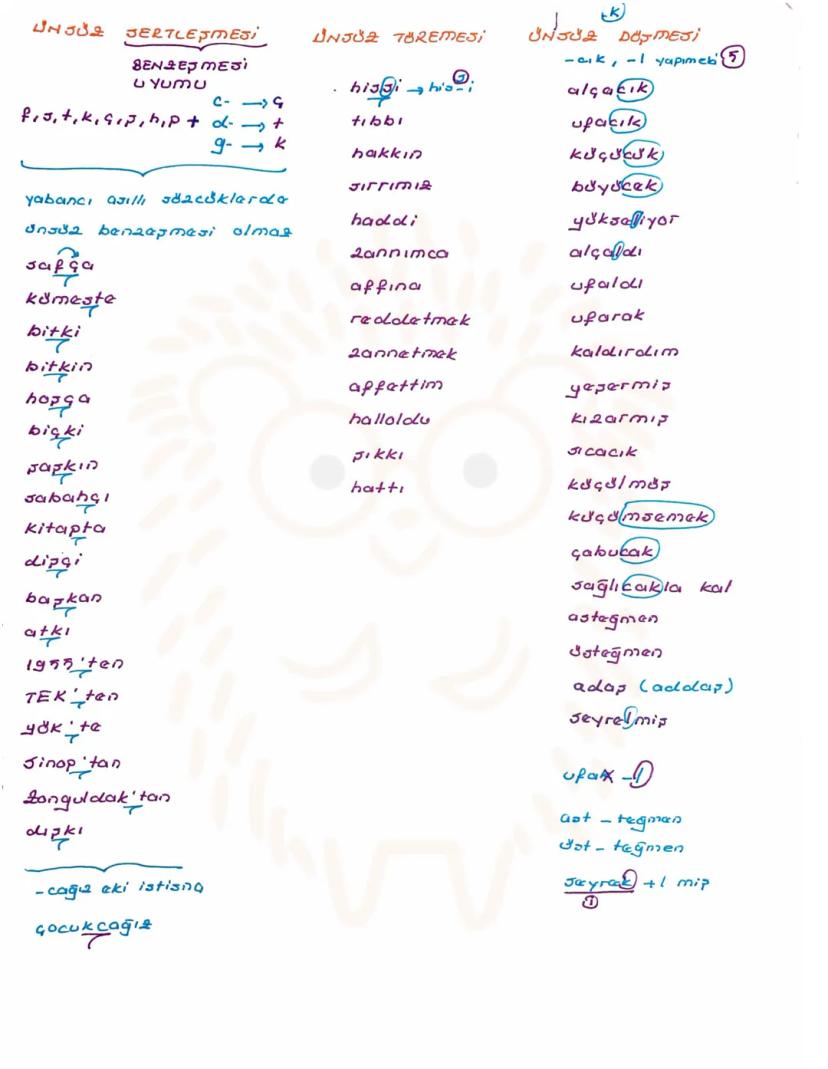 ÜNSÜZ SERTLEŞMESİ
BENZEŞMESİ
UYUMU
f, s, t, k, ç, ş, h, p +
c- → ç
d- → t
g- → k
yabancı asıllı sözcüklerde
ünsüz benzeşmesi olmaz
safça
kümeste
bitki
bitkin
hoşça
biçki
şaşkın
sabahçı
kitapta
dipçi
başkan
atkı
1955'ten
TEK'ten
yök'te
Sinop'tan
Zonguldak'tan
dışkı
-cağız eki istisna
çocukcağız
ÜNSÜZ TÜREMESİ
hissi → his-i
tıbbı
hakkın
sırrımız
haddi
zannımca
affına
reddetmek
zannetmek
affettim
halloldu
şıkkı
hattı
k
ÜNSÜZ DÜŞMESİ
-cık, -l yapımeki 5
alçacık
ufacık
küçücük
büyücek
yükseliyor
alçaldı
ufaldı
ufarak
kaldırdım
yeşermiş
kızarmış
sıcacık
küçülmüş
küçümsemek
çabucak
sağlıcakla kal
asteğmen
üsteğmen
adaş (addaş)
seyrelmiş
ufak -l
ast - teğmen
üst - teğmen
seyrek +l miş